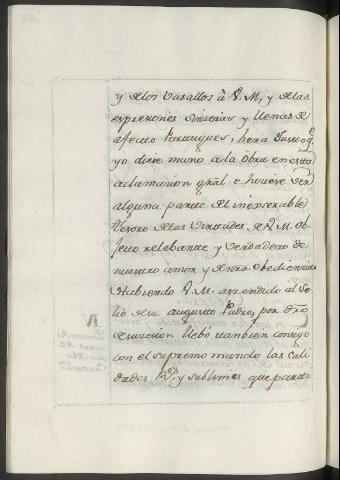 y de los Vasallos à V. M, y de las
expresiones sinceras y llenas de
afecto Portugues, hera Justo q.e
yo diese mano a la obra en esta
aclamacion gral e hiciese ver
alguna parte del inexorable
tesoro de las Virtudes de V. M. Ob-
jeto relebante y verdadero de
nuestro amor y obediencia
Habiendo V. M. ascendido al So-
lio de su augusto Padre, por dro
de sucesion llebó tambien consigo
con el supremo mando las cali
dades R.s y sublimes que parti
IV